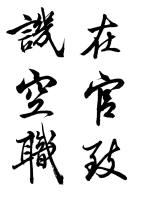 在官致
譏空職